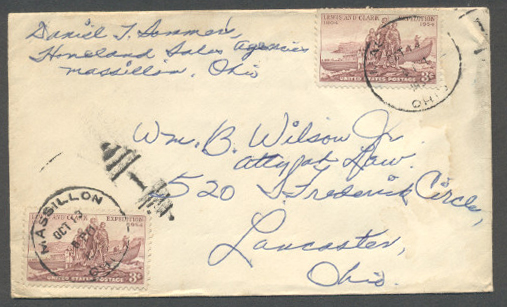 Daniel T. Sommers
Homeland Sales Agencies
Massillon, Ohio
LEWIS AND CLARK EXPEDITION
1804 1954
UNITED STATES POSTAGE 3¢
OHIO
Wm. B. Wilson Jr.
Atty at Law.
520 Frederick Circle,
Lancaster,
Ohio.
MASSILLON
OCT 13
LEWIS AND CLARK EXPEDITION
1954
UNITED STATES POSTAGE 3¢